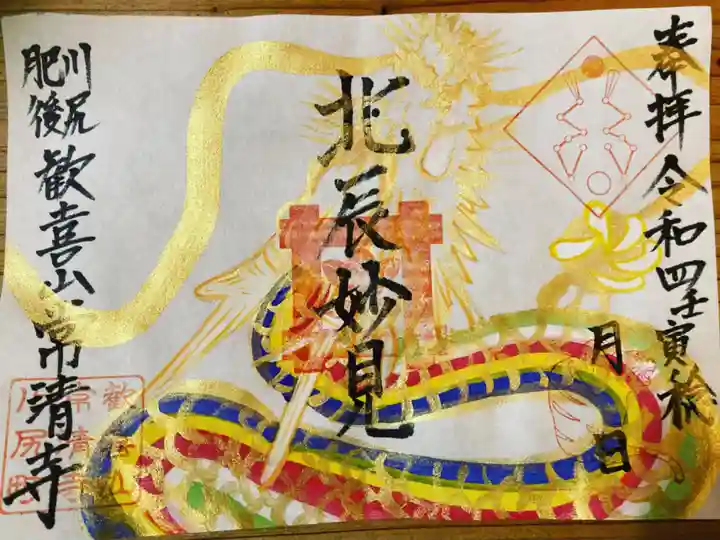 奉拝 令和四壬寅秋
月 日
北辰妙見
肥後
川尻
歓喜山 常清寺
歓喜山
常清寺
川尻町